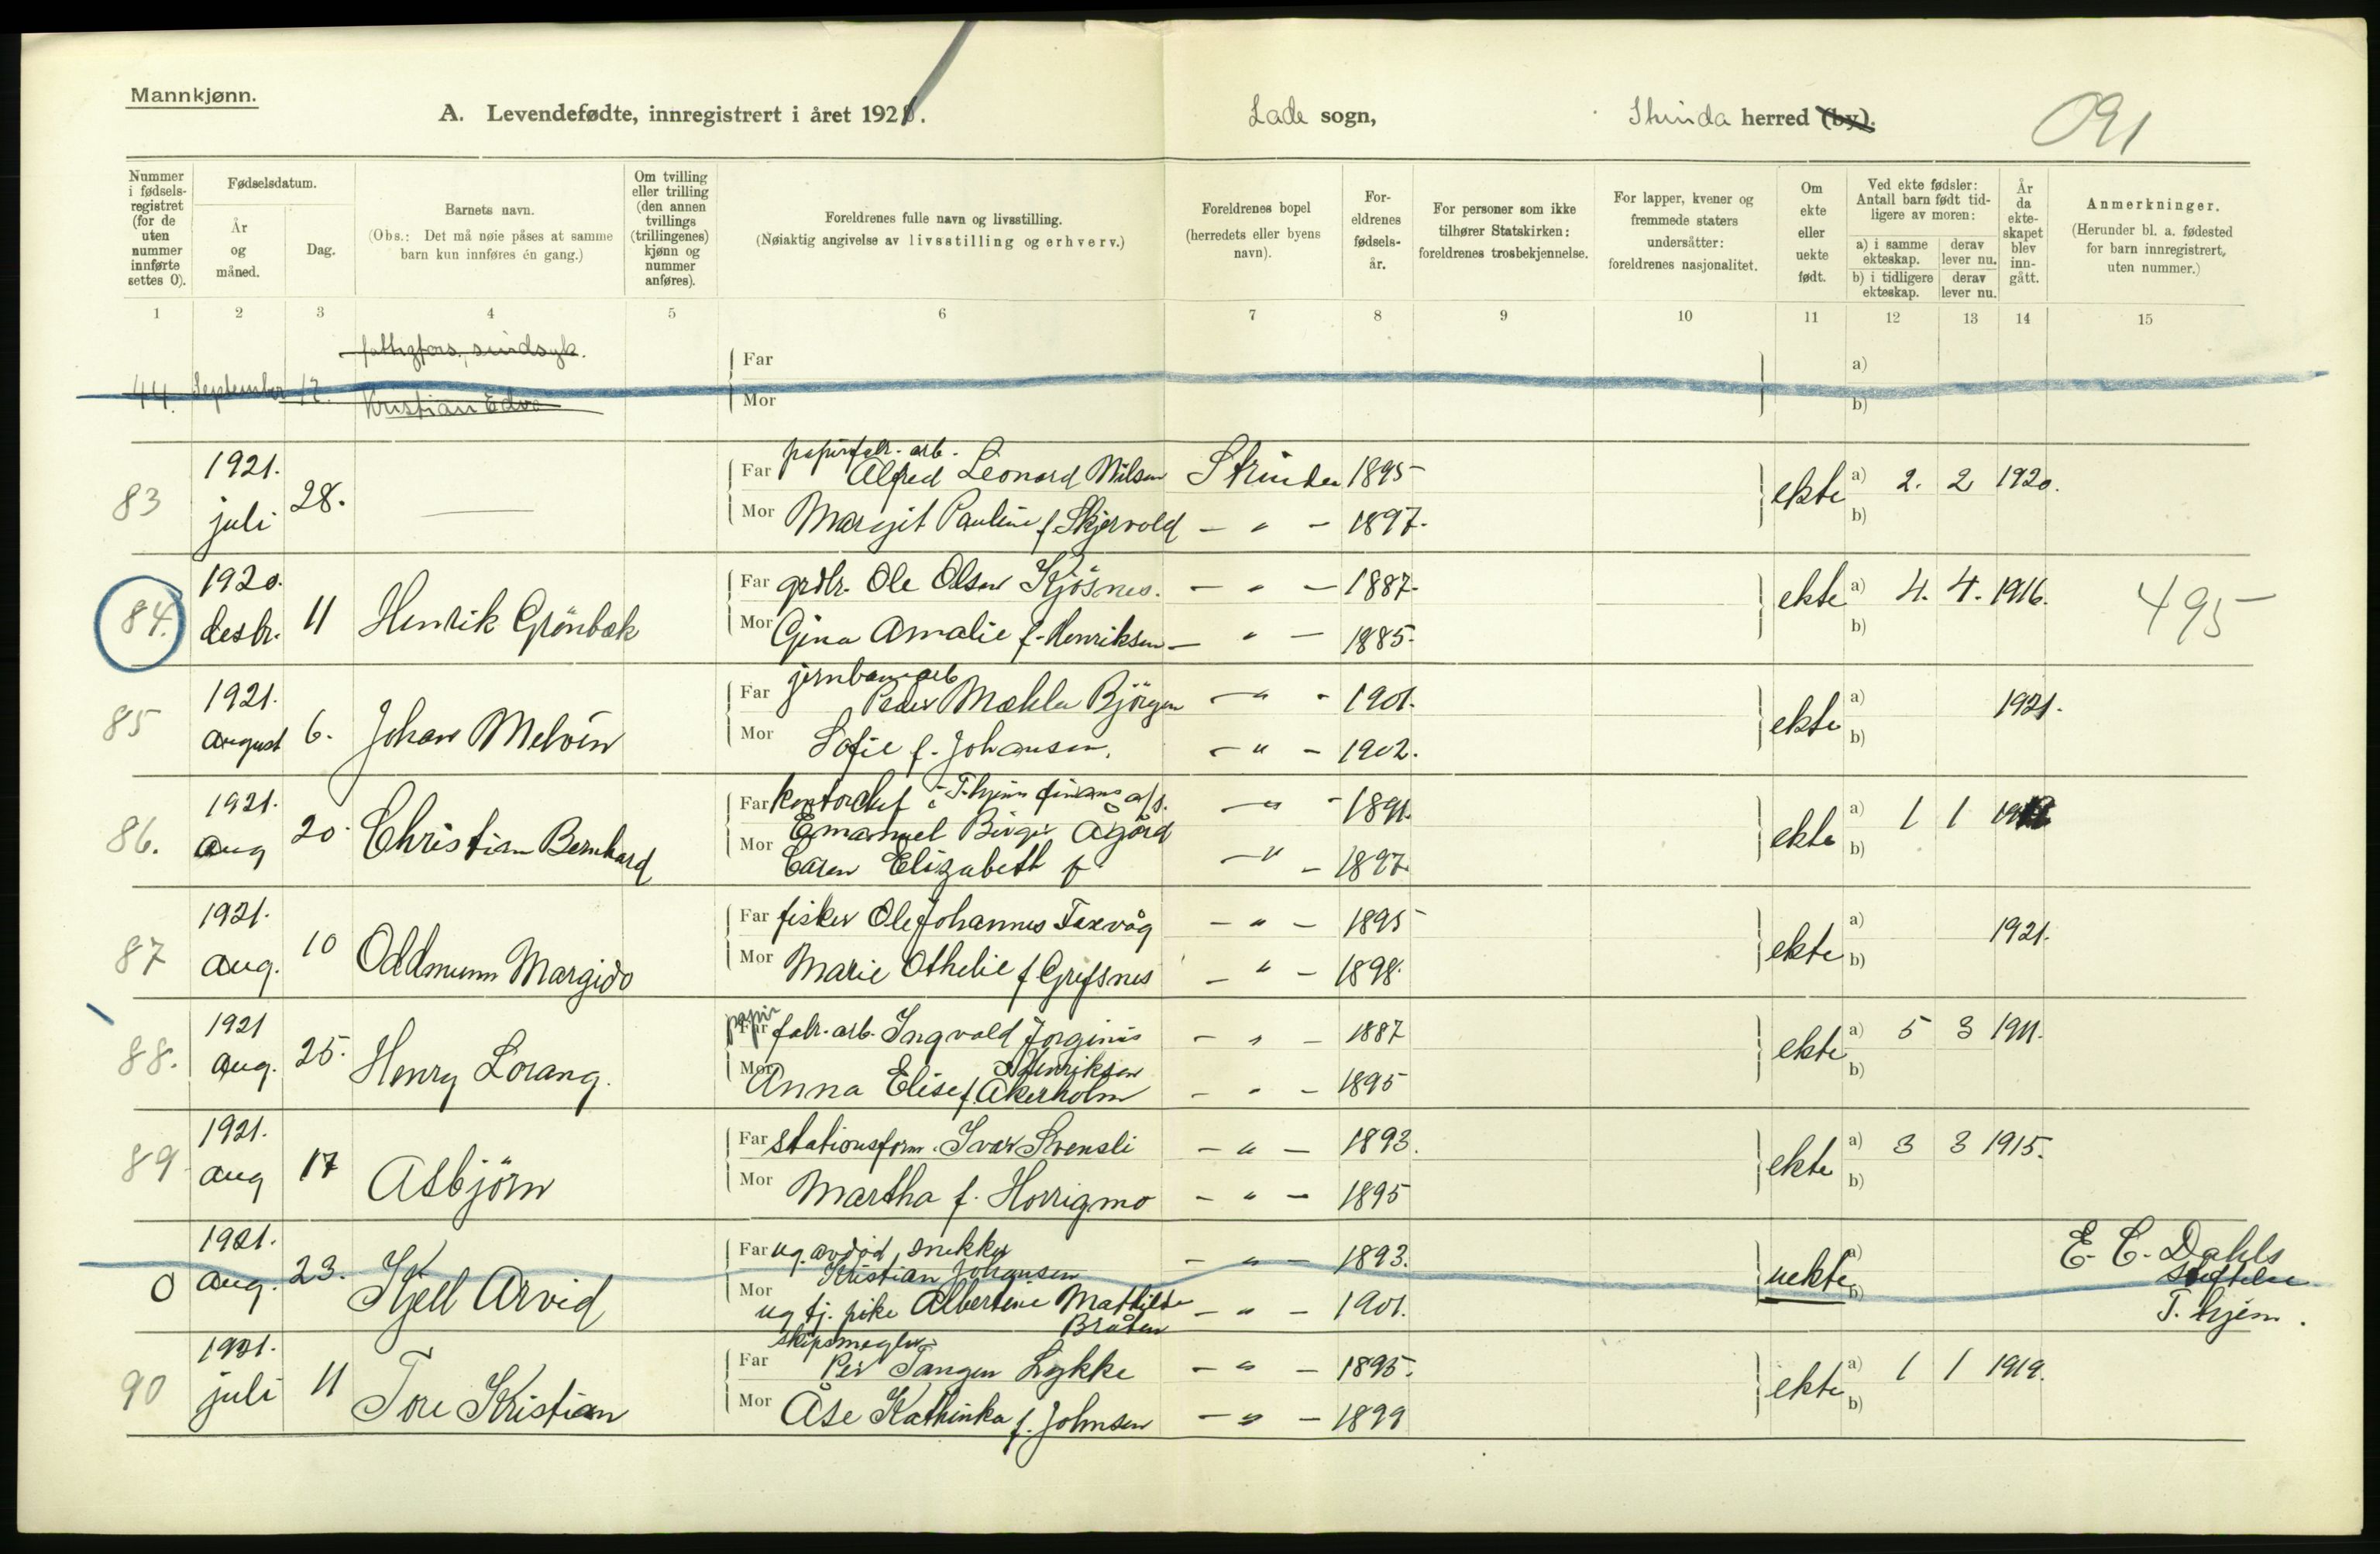 Mannkjønn.
A. Levendefødte, innregistrert i året 1921.
Lade sogn,
Strinda herred (by).
091
Nummer i fødselsregistret (for de uten nummer innførte settes 0).
Fødselsdatum.
År og måned.
Dag.
Barnets navn.
(Obs.: Det må nøie påses at samme barn kun innføres én gang.)
Om tvilling eller trilling (den annen tvillings (trillingenes) kjønn og nummer anføres).
Foreldrenes fulle navn og livsstilling.
(Nøiaktig angivelse av livsstilling og erhverv.)
Foreldrenes bopel (herredets eller byens navn).
Foreldrenes fødselsår.
For personer som ikke tilhører Statskirken: foreldrenes trosbekjennelse.
For lapper, kvener og fremmede staters undersåtter: foreldrenes nasjonalitet.
Om ekte eller uekte født.
Ved ekte fødsler: Antall barn født tidligere av moren:
a) i samme ekteskap.
derav lever nu.
b) i tidligere ekteskap.
derav lever nu.
År da ekteskapet blev inngått.
Anmerkninger.
(Herunder bl. a. fødested for barn innregistrert, uten nummer.)
1 2 3 4 5 6 7 8 9 10 11 12 13 14 15
fattigfors., sindsyk.
44. September 12. Kristian Edv
Far
Mor
a)
b)
83 1921. juli 28. —
Far papirfabr. arb. Alfred Leonard Nilsen Strinda 1895
Mor Margit Pauline f. Skjervold — " — 1897.
ekte a) 2. 2 1920.
b)
84. 1920. desbr. 11 Henrik Grönbæk
Far grdbr. Ole Olsen Kjösnes. — " — 1887.
Mor Gina Amalie f. Henriksen — " — 1885.
ekte a) 4. 4. 1916. 495
b)
85 1921. august 6. Johan Melvin
Far jernbanearb Peder Mæhla Björgen — " - 1901.
Mor Sofie f. Johansen. — " — 1902.
ekte a) 1921.
b)
86. 1921. aug 20. Christian Bernhard
Far kontorchef i T.hjem finans a/s. — " - 1891.
Emanuel Birger Ågård
Mor Caren Elizabeth f — " — 1897.
ekte a) 1 1
b)
87 1921. aug. 10 Oddmunn Margido
Far fisker Ole Johannes Faxvåg — " — 1895
Mor Marie Othelie f. Grefsnes — " — 1898.
ekte a) 1921.
b)
88. 1921 aug. 25. Henry Lorang.
Far papir fabr. arb. Ingvald Jorginus — " — 1887
Henriksen
Mor Anna Elise f. Åkerholm — " — 1895
ekte a) 5 3 1911.
b)
89 1921. aug 17 Asbjörn
Far stationsform. Ivar Svensli — " — 1893.
Mor Martha f. Horrigmo — " — 1895
ekte a) 3 3 1915.
b)
0 1921. aug. 23. Kjell Arvid
Far ug. avdöd, snekker — " — 1893.
Kristian Johansen
Mor ug tj. pike Albertine Mathilde — " — 1901.
Bråten
uekte a)
b)
E. C. Dahls
Stiftelse
T. hjem.
90 1921. juli 11 Tore Kristian
Far skipsmegler Per Tangen Lykke — " — 1895.
Mor Åse Kathinka f. Johnsen — " — 1899
ekte a) 1 1 1919.
b)